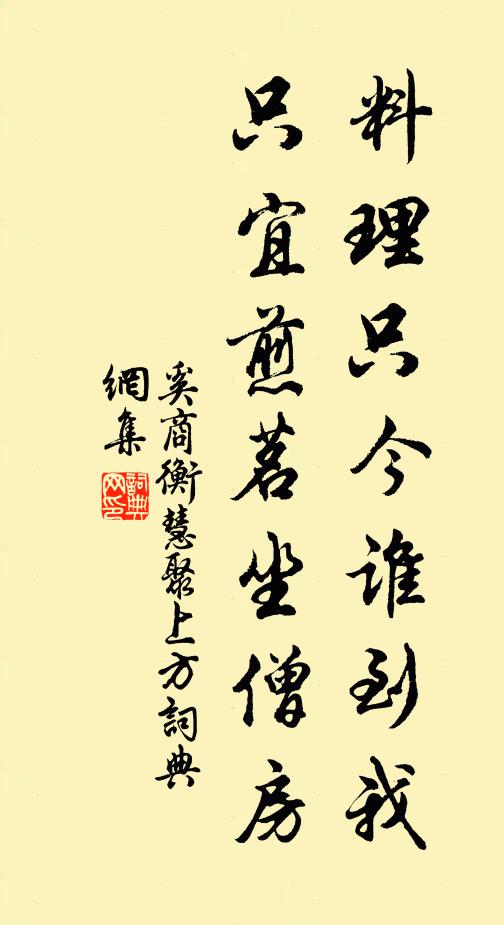 料理只今谁到我
只宜煎茗坐僧房
奚商衡慧聚上方詞典
網集
詞典
网印